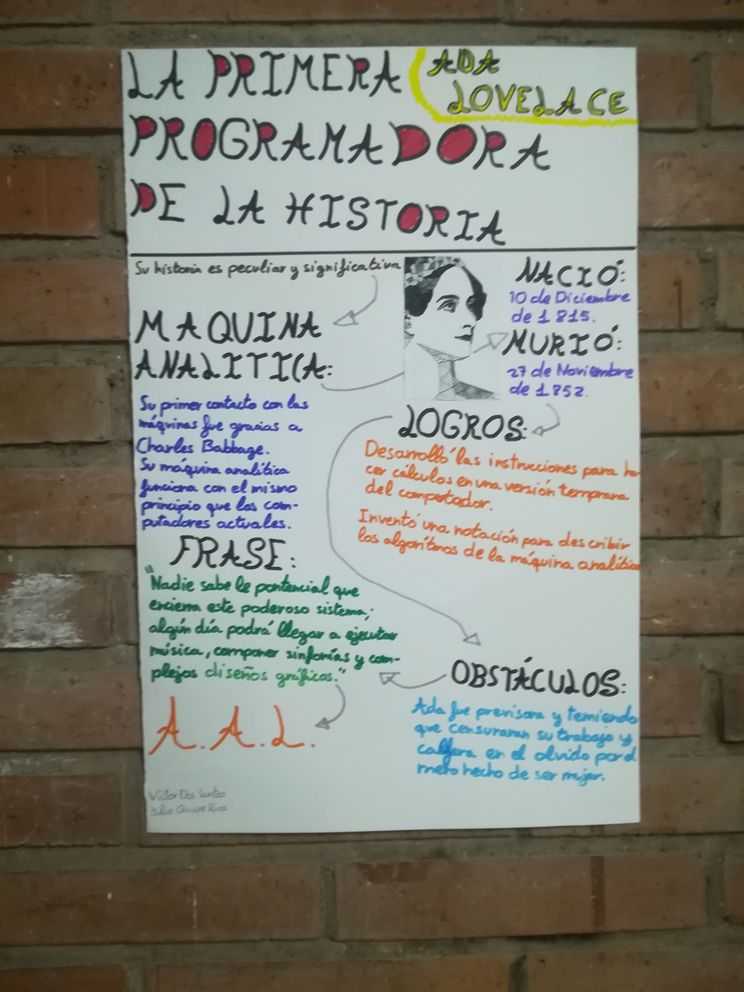 LA PRIMERA
PROGRAMADORA
DE LA HISTORIA
ADA
LOVELACE
Su historia es peculiar y significativa
MAQUINA
ANALITICA:
Su primer contacto con las
máquinas fue gracias a
Charles Babbage.
Su máquina analítica
funciona con el mismo
principio que los com-
putadores actuales.
NACIÓ:
10 de Diciembre
de 1815.
MURIÓ:
27 de Noviembre
de 1852.
LOGROS:
Desarrolló las instrucciones para ha
cer cálculos en una versión temprana
del computador.
Inventó una notación para describir
los algoritmos de la máquina analítica
FRASE:
"Nadie sabe le pontencial que
encierra este poderoso sistema;
algún día podrá llegar a ejecutar
música, componer sinfonías y com-
plejos diseños gráficos."
A.A.L.
OBSTÁCULOS:
Ada fue previsora y temiendo
que censuraran su trabajo y
callera en el olvido por el
mero hecho de ser mujer.
Victor Dos Santos